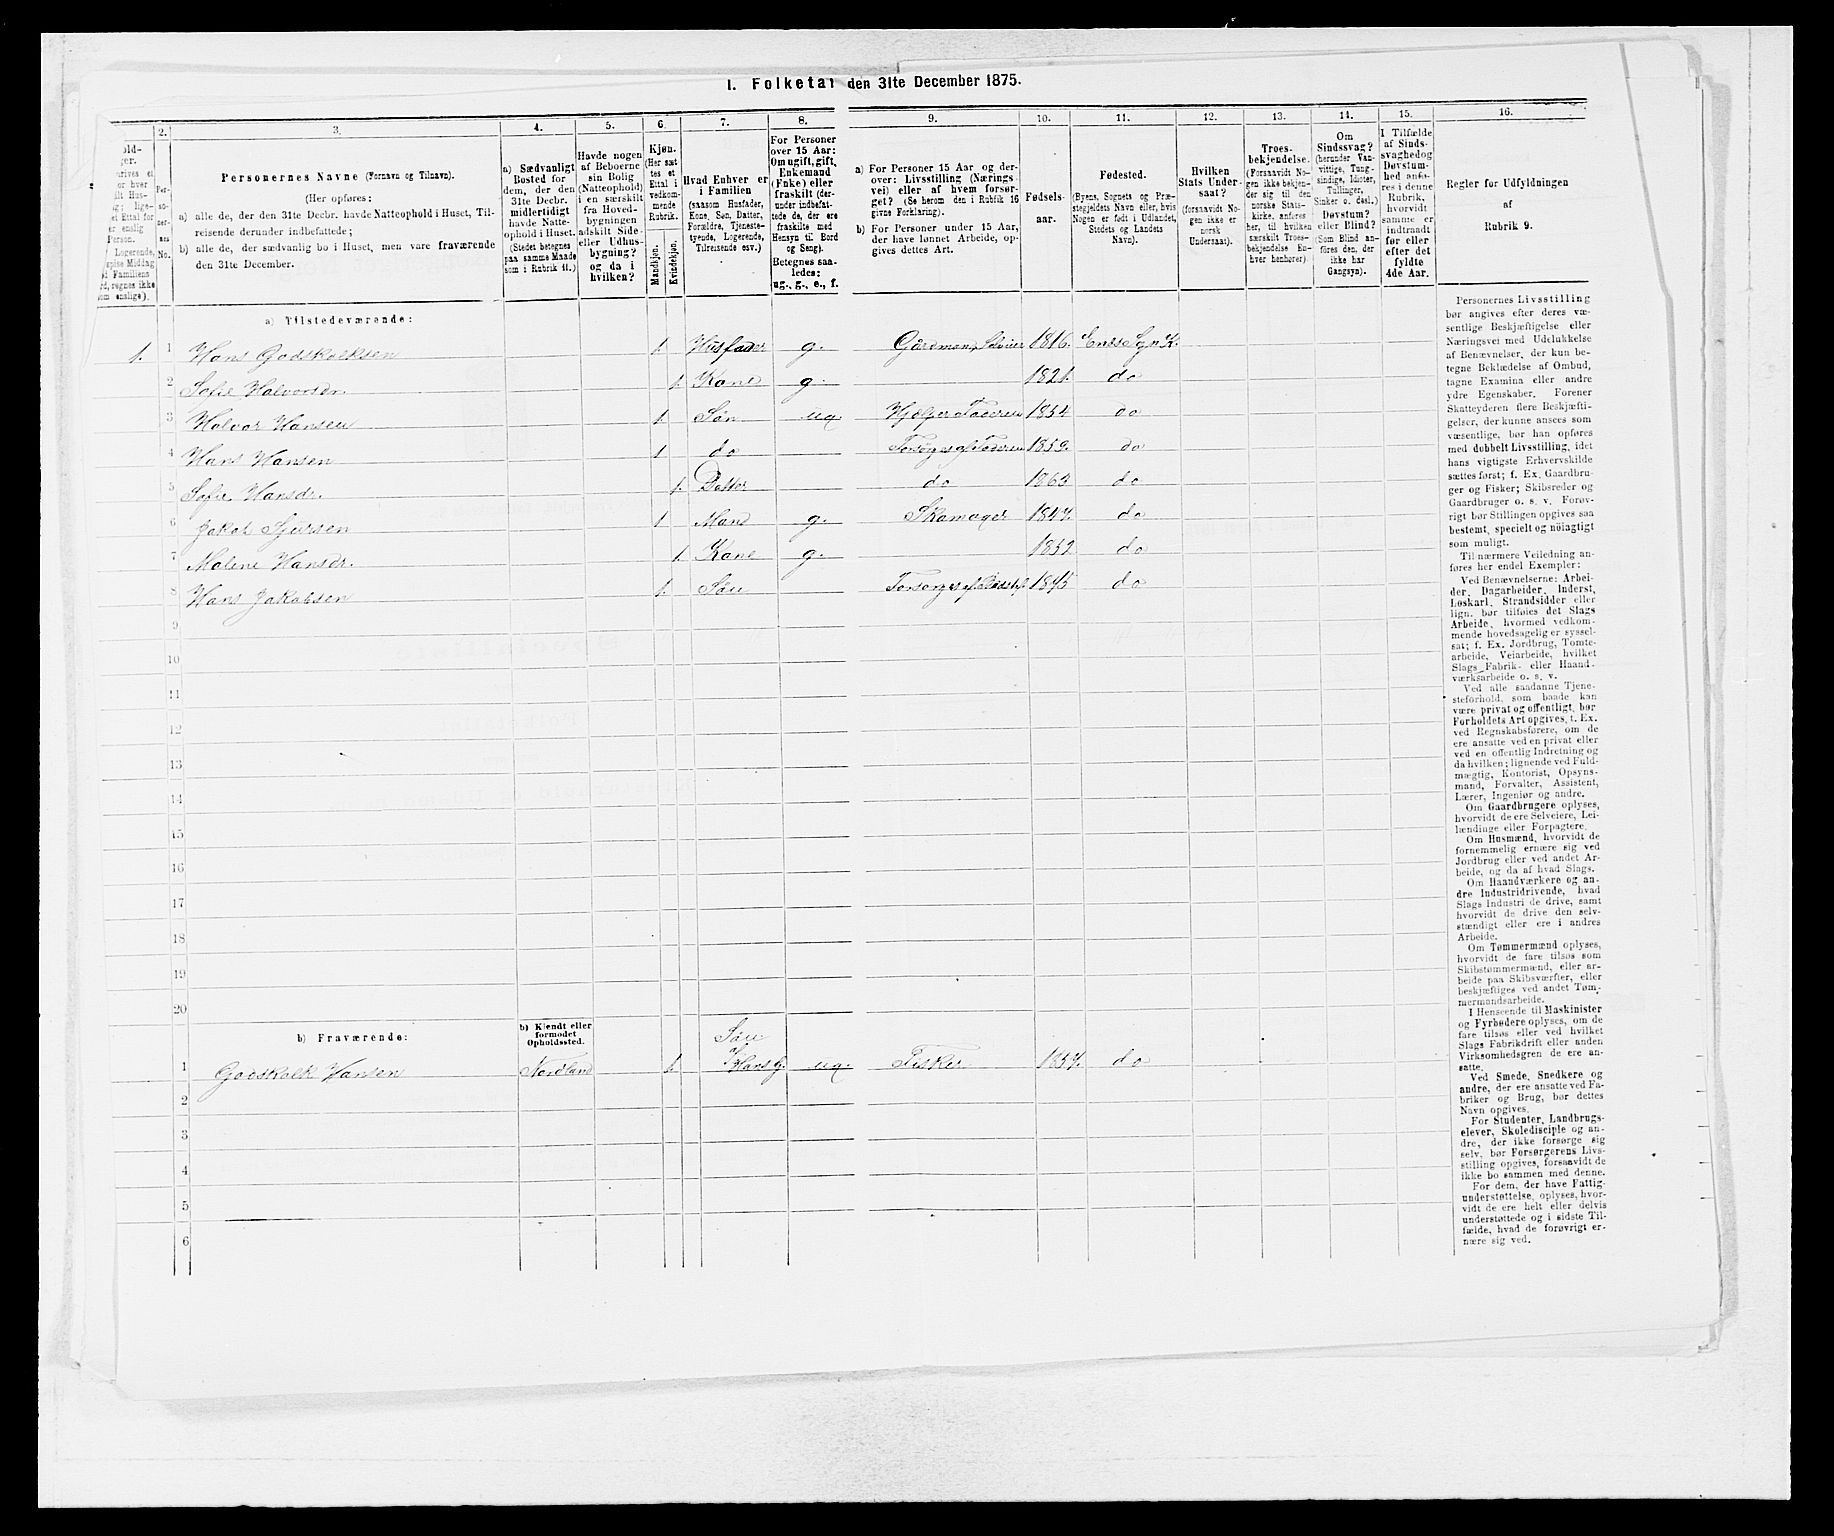 1. Folketal den 31te December 1875.
2. 3. 4. 5. 6. 7. 8. 9. 10. 11. 12. 13. 14. 15. 16.
Personernes Navne (Fornavn og Tilnavn).
(Her opføres:
a) alle de, der den 31te Decbr. havde Natteophold i Huset, Tilreisende derunder indbefattede;
b) alle de, der sædvanlig bo i Huset, men vare fraværende den 31te December.
a) Sædvanligt Bosted for dem, der den 31te Decbr. midlertidigt havde Natteophold i Huset. (Stedet betegnes paa samme Maade som i Rubrik 11.)
Havde nogen af Beboerne sin Bolig (Natteophold) i en særskilt fra Hovedbygningen adskilt Side- eller Udhusbygning? og da i hvilken?
Kjøn. (Her sættes et Ettal i vedkommende Rubrik.
Mandkjøn. Kvindekjøn.
Hvad Enhver er i Familien
(saasom Husfader, Kone, Søn, Datter, Forældre, Tjenestetyende, Logerende, Tilreisende esv.)
For Personer over 15 Aar: Om ugift, gift, Enkemand (Enke) eller fraskilt (derunder indbefattede de, der ere fraskilte med Hensyn til Bord og Seng). Betegnes saaledes: ug., g., e., f.
a) For Personer 15 Aar og derover: Livsstilling (Næringsvei) eller af hvem forsørget? (Se herom den i Rubrik 16 givne Forklaring).
b) For Personer under 15 Aar, der have lønnet Arbeide, opgives dettes Art.
Fødselsaar.
Fødested.
(Byens, Sognets og Præstegjeldets Navn eller, hvis Nogen er født i Udlandet, Stedets og Landets Navn).
Hvilken Stats Undersaat?
(forsaavidt Nogen ikke er norsk Undersaat).
Troesbekjendelse.
(Forsaavidt Nogen ikke bekjender sig til den norske Statskirke, anføres her, til hvilken særskilt Troesbekjendelse Enhver henhører).
Om Sindssvag? (herunder Vanvittige, Tungsindige, Idioter, Tullinger, Sinker o. desl.). Døvstum? eller Blind? (Som Blind anføres den, der ikke har Gangsyn).
I Tilfælde af Sindssvaghed og Døvstumhed anføres i denne Rubrik, hvorvidt samme er indtraadt før eller efter det fyldte 4de Aar.
Regler for Udfyldningen
af
Rubrik 9.
a) Tilstedeværende:
1. 1 Hans Godskalksen 1. Husfader g. Gårdmand, Selveier 1816. Endss Sgn K.
2 Sofie Halvorsdr. 1. Kone g. 1821. do
3 Halvor Hansen 1. Søn ug. Hjelper Faderen 1854 do
4 Hans Hansen 1 do Forsørges af Faderen 1859. do
5 Sofie Hansdr. 1. Datter do 1863 do
6 Jakob Sjursen 1 Mand g. Skomager 1847. do
7 Malene Hansdr. 1. Kone g. 1852 do
8 Hans Jakobsen 1. Søn 1875 do
9
10
11
12
13
14
15
16
17
18
19
20
b) Fraværende:
b) Kjendt eller formodet Opholdssted.
Søn
1 Godskalk Hansen Nordland 1. af Hans G. ug. Fisker 1857. do
2
3
4
5
6
Personernes Livsstilling
bør angives efter deres væ-
sentlige Beskjæftigelse eller
Næringsvei med Udelukkelse
af Benævnelser, der kun be-
tegne Beklædelse af Ombud,
tagne Examina eller andre
ydre Egenskaber. Forener
Skatteyderen flere Beskjæfti-
gelser, der kunne ansees som
væsentlige, bør han opføres
med dobbelt Livsstilling, idet
hans vigtigste Erhvervskilde
sættes først; f. Ex. Gaardbru-
ger og Fisker; Skibsreder og
Gaardbruger o. s. v. Forøv-
rigt bør Stillingen opgives saa
bestemt, specielt og nöiagtigt
som muligt.
Til nærmere Veiledning an-
føres her endel Exempler:
Ved Benævnelserne: Arbei-
der, Dagarbeider, Inderst,
Løskarl, Strandsidder eller
lign. bør tilføies det Slags
Arbeide, hvormed vedkom-
mende hovedsagelig er syssel-
sat; f. Ex. Jordbrug, Tomte-
arbeide, Veiarbeide, hvilket
Slags Fabrik- eller Haand-
værksarbeide o. s. v.
Ved alle saadanne Tjene-
steforhold, som baade kan
være privat og offentligt, bør
Forholdets Art opgives, f. Ex.
ved Regnskabsførere, om de
ere ansatte ved en privat eller
ved en offentlig Indretning og
da hvilken; lignende ved Fuld-
mægtig, Kontorist, Opsyns-
mand, Forvalter, Assistent,
Lærer, Ingeniør og andre.
Om Gaardbrugere oplyses,
hvorvidt de ere Selveiere, Lei-
lændinge eller Forpagtere.
Om Husmænd, hvorvidt de
fornemmelig ernære sig ved
Jordbrug eller ved andet Ar-
beide, og da af hvad Slags.
Om Haandværkere og an-
dre Industridrivende, hvad
Slags Industri de drive, samt
hvorvidt de drive den selv-
stændigt eller ere i andres
Arbeide.
Om Tømmermænd oplyses,
hvorvidt de fare tilsøs som
Skibstømmermænd, eller ar-
beide paa Skibsværfter, eller
beskjæftiges ved andet Tøm-
mermandsarbeide.
I Henseende til Maskinister
og Fyrbødere oplyses, om de
fare tilsøs eller ved hvilket
Slags Fabrikdrift eller anden
Virksomhedsgren de ere an-
satte.
Ved Smede, Snedkere og
andre, der ere ansatte ved Fa-
briker og Brug, bør dettes
Navn opgives.
For Studenter, Landbrugs-
elever, Skoledisciple og an-
dre, der ikke forsørge sig
selv, bør Forsørgerens Livs-
stilling opgives, forsaavidt de
ikke bo sammen med denne.
For dem, der have Fattig-
understøttelse, oplyses, hvor-
vidt de ere helt eller delvis
understøttede og i sidste Til-
fælde, hvad de forøvrigt er-
nære sig ved.